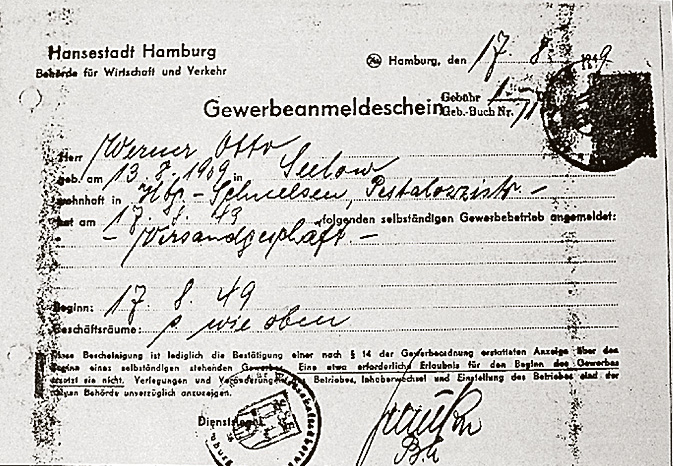 Hansestadt Hamburg
Behörde für Wirtschaft und Verkehr
Hamburg, den 17. 8. 1949
Gewerbeanmeldeschein
Gebühr 1.-
Geb.-Buch Nr.
Herr Werner Otto
geb. am 13. 8. 1909 in Seelow
wohnhaft in Hbg-Schnelsen, Pestalozzistr -
hat am 17. 8. 49 folgenden selbständigen Gewerbebetrieb angemeldet:
- Versandgeschäft. -
Beginn: 17. 8. 49
Geschäftsräume: s wie oben
Diese Bescheinigung ist lediglich die Bestätigung einer nach § 14 der Gewerbeordnung erstatteten Anzeige über den
Beginn eines selbständigen stehenden Gewerbes. Eine etwa erforderliche Erlaubnis für den Beginn des Gewerbes
ersetzt sie nicht. Verlegungen und Veränderungen des Betriebes, Inhaberwechsel und Einstellung des Betriebes sind der
obigen Behörde unverzüglich anzuzeigen.
Dienstsiegel